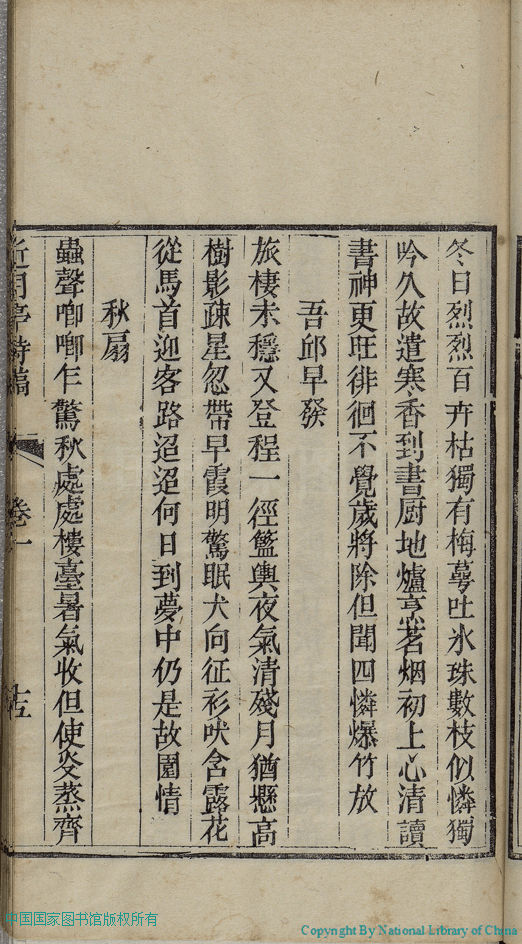 冬日烈烈百卉枯獨有梅萼吐氷珠數枝似憐獨
吟久故遣寒香到書厨地爐烹茗烟初上心清讀
書神更旺徘徊不覺歲將除但聞四憐爆竹放
吾邱早發
旅棲未穩又登程一徑籃輿夜氣清殘月猶懸高
樹影疎星忽帶早霞明驚眠犬向征衫吠含露花
從馬首迎客路迢迢何日到夢中仍是故園情
秋扇
蟲聲喞喞乍驚秋處處樓臺暑氣收但使炎蒸齊
亭詩
卷一
十五
中国国家图书馆版权所有
Copyright By National Library of China